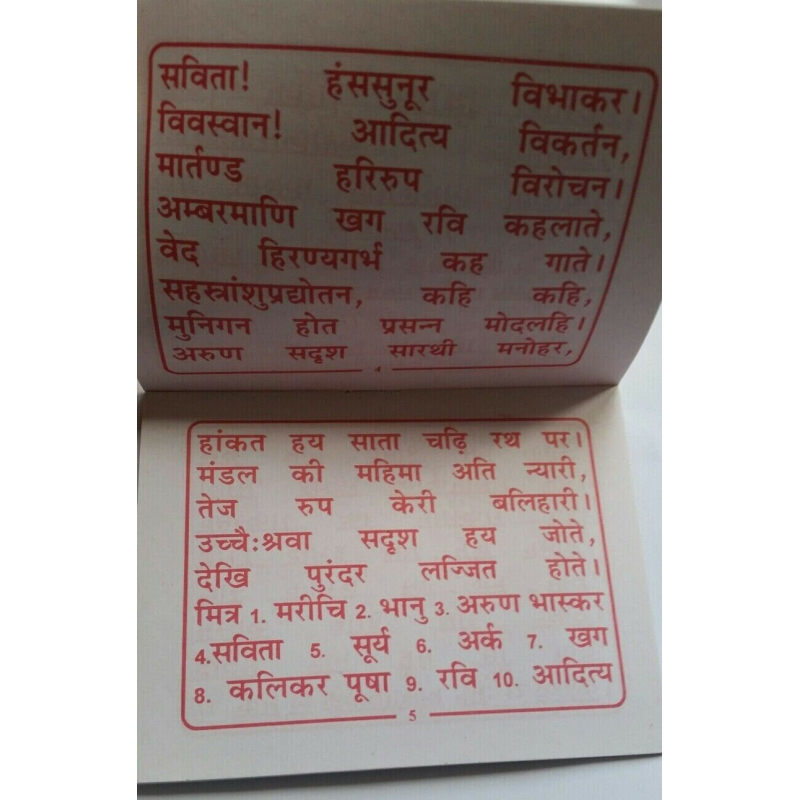 सविता! हंससुनूर विभाकर।
विवस्वान! आदित्य विकर्तन,
मार्तण्ड हरिरुप विरोचन।
अम्बरमाणि खग रवि कहलाते,
वेद हिरण्यगर्भ कह गाते।
सहस्त्रांशुप्रद्योतन, कहि कहि,
मुनिगन होत प्रसन्न मोदलहि।
अरुण सदृश सारथी मनोहर,
4
हांकत हय साता चढ़ि रथ पर।
मंडल की महिमा अति न्यारी,
तेज रुप केरी बलिहारी।
उच्चैःश्रवा सदृश हय जोते,
देखि पुरंदर लज्जित होते।
मित्र 1. मरीचि 2. भानु 3. अरुण भास्कर
4.सविता 5. सूर्य 6. अर्क 7. खग
8. कलिकर पूषा 9. रवि 10. आदित्य
5